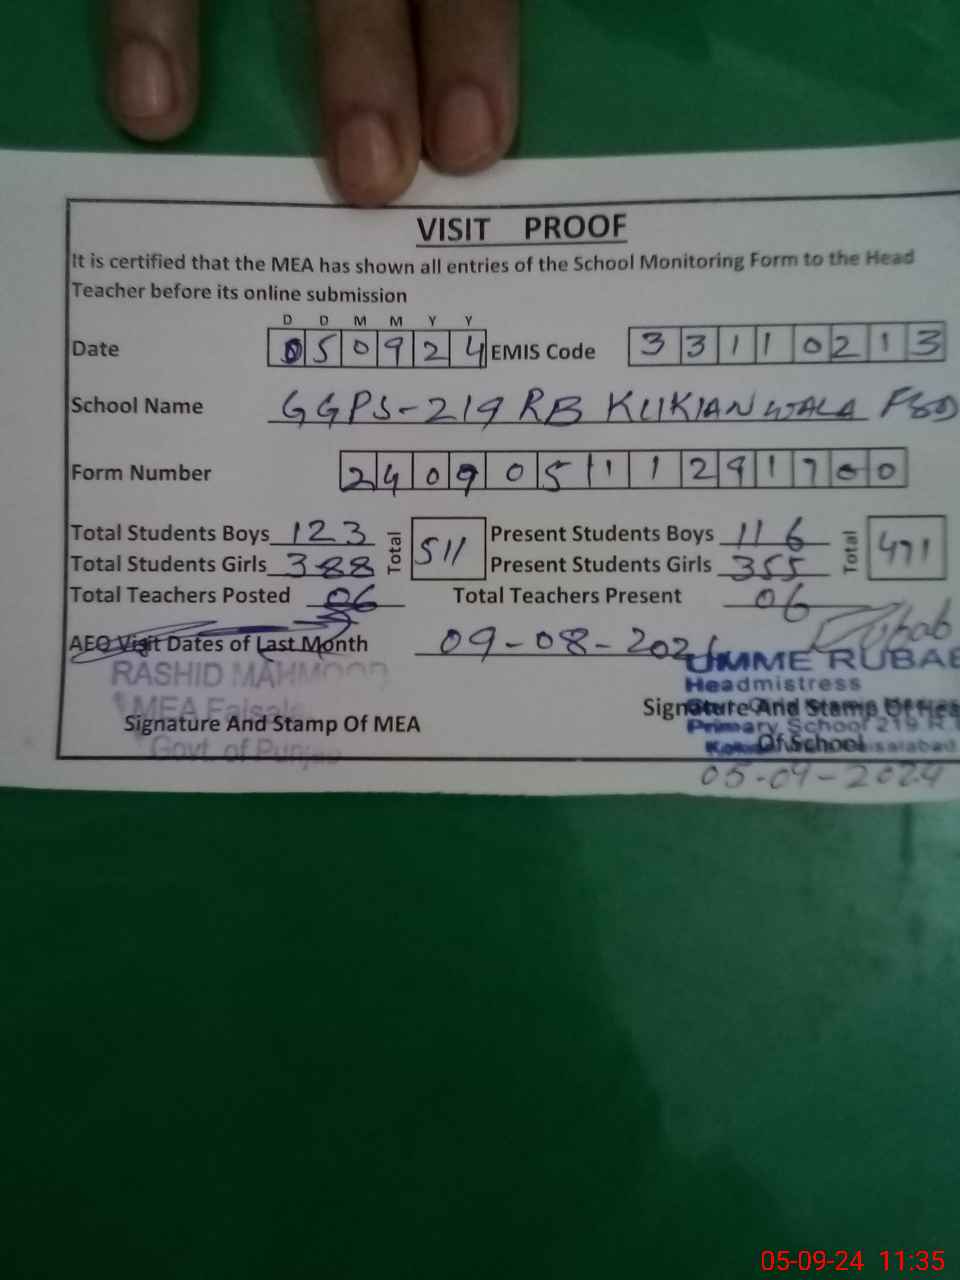 VISIT PROOF
It is certified that the MEA has shown all entries of the School Monitoring Form to the Head
Teacher before its online submission
D D M M Y Y
Date 050924 EMIS Code 33110213
School Name GGPS-219 RB KUKIANWALA FSD
Form Number 240905111291700
Total Students Boys 123 Total 511 Present Students Boys 116 Total 471
Total Students Girls 388 Present Students Girls 355
Total Teachers Posted 06 Total Teachers Present 06
AEO Visit Dates of Last Month 09-08-2024
RASHID MAHMOOD
MEA Faisala
Govt. of Punjab
Signature And Stamp Of MEA
Rubab
UMME RUBAB
Headmistress
Signature And Stamp Of Hea
Primary School 219 R.
Of School
isalabad
05-09-2024
05-09-24 11:35